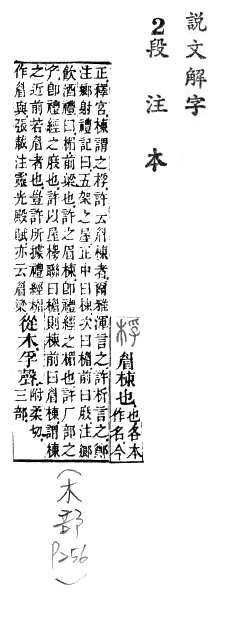 說文解字
2段注本
桴 眉棟也 也各本
作名今
正釋宮棟謂之桴許云眉棟者爾雅渾言之許析言之鄭
注鄉射禮記曰五架之屋正中曰棟次曰楣前曰庪注鄉
飲酒禮曰楣前梁也許之眉棟卽禮經之楣也許厂部之
厃卽禮經之庪也許以屋櫋聯曰楣則棟前曰眉棟謂棟
之近前若眉者也豈許所據禮經楣
作眉與張載注靈光殿賦亦云眉梁
從木孚聲 附柔切
三部
(木部 P256)